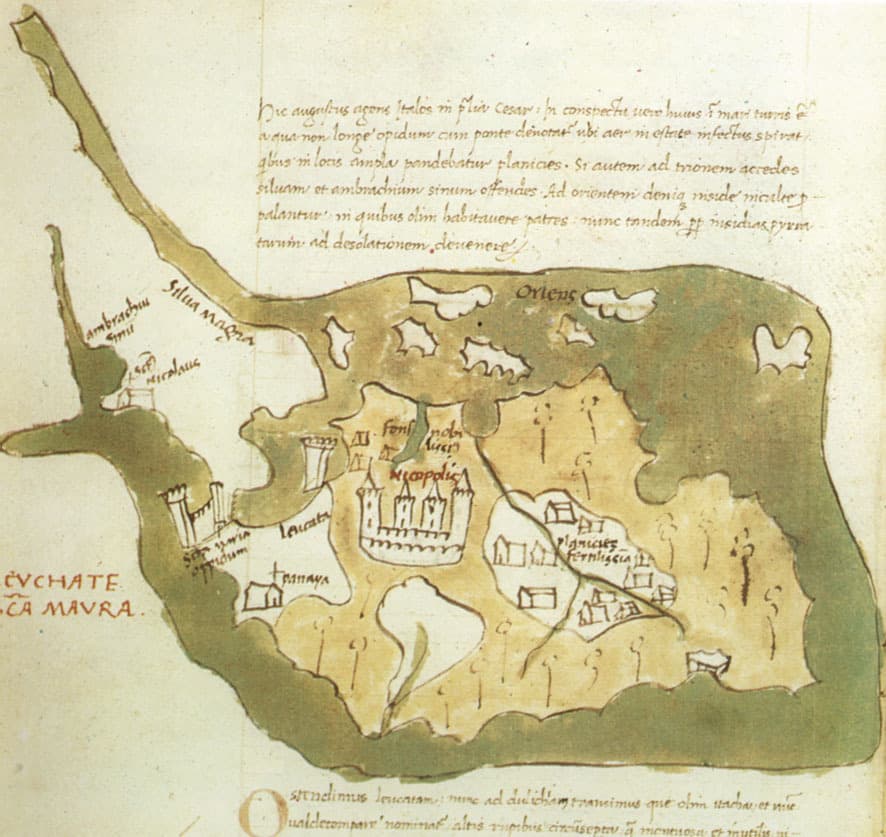 hic augustus agens Italos in plia Cesar : In conspectu vero huius i mari turris e
a qua non longe opidum cum ponte denotat ubi aer in estate infectus spirat
qbus in locis ampla pandebatur planicies. Si autem ad trionem accedes
siluam et ambrachium sinum offendes. Ad orientem deniq inside inculte p
palantur in quibus olim habitavere patres : nunc tandem pp insidias pyrra
tarum ad desolationem devenere
Oriens
Silva Magna
ambrachiu
sinu
sct
nicolaus
fons nobi
lissi
Nicopolis
leucata
planicies
fertilissia
Scta maria
oppidum
panaya
EVCHATE
CA MAVRA.
Ostendimus leucatam : nunc ad dulichiam transimus que olim itacha, et nuc
ualdecompare nominat altis rupibus circusepta q montuosa et inutilis